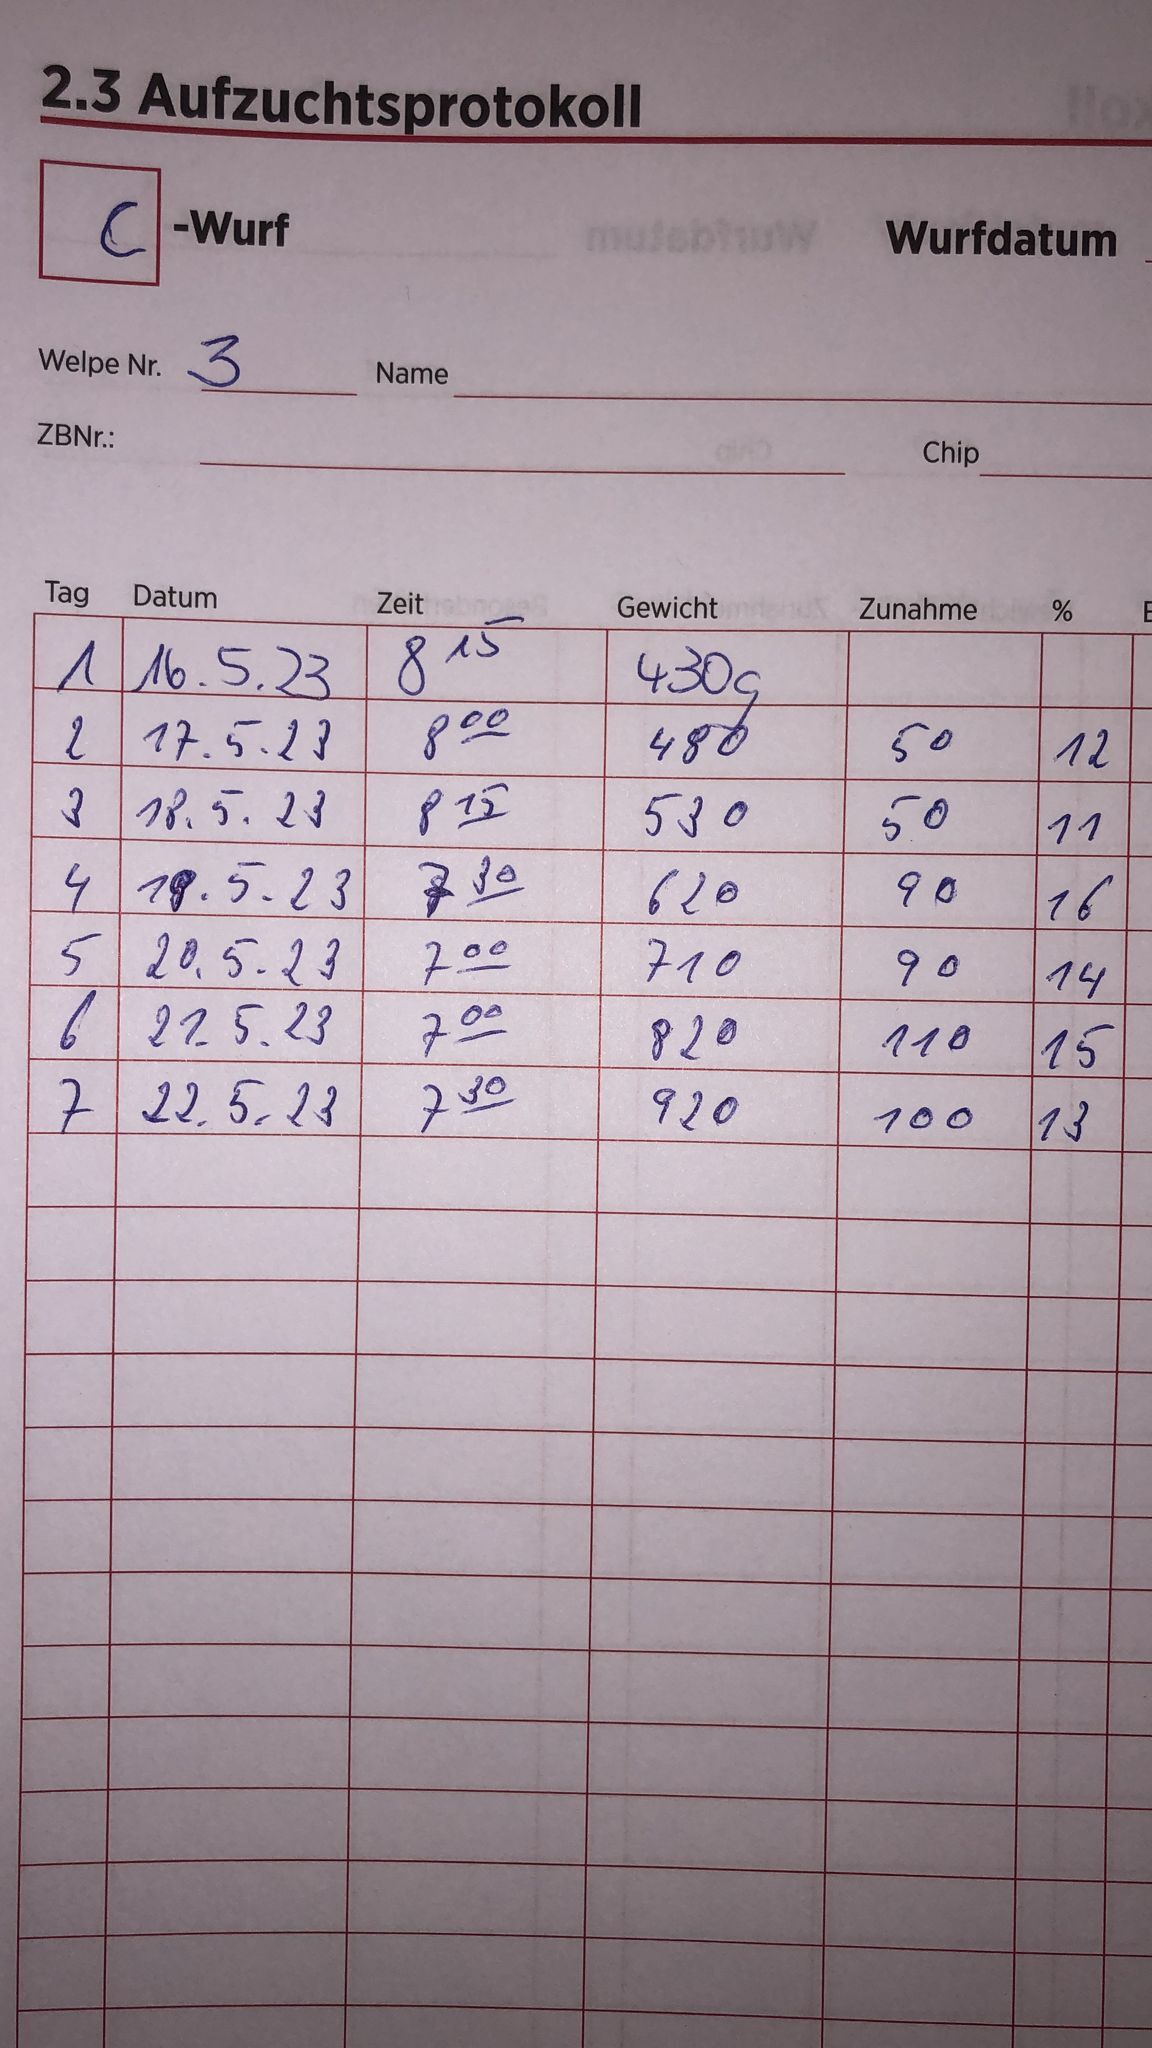 2.3 Aufzuchtsprotokoll
C -Wurf Wurfdatum
Welpe Nr. 3 Name
ZBNr.: Chip
Tag Datum Zeit Gewicht Zunahme %
1 16.5.23 8 15 430g
2 17.5.23 8 00 480 50 12
3 18.5.23 8 15 530 50 11
4 19.5.23 7 30 620 90 16
5 20.5.23 7 00 710 90 14
6 21.5.23 7 00 820 110 15
7 22.5.23 7 30 920 100 13